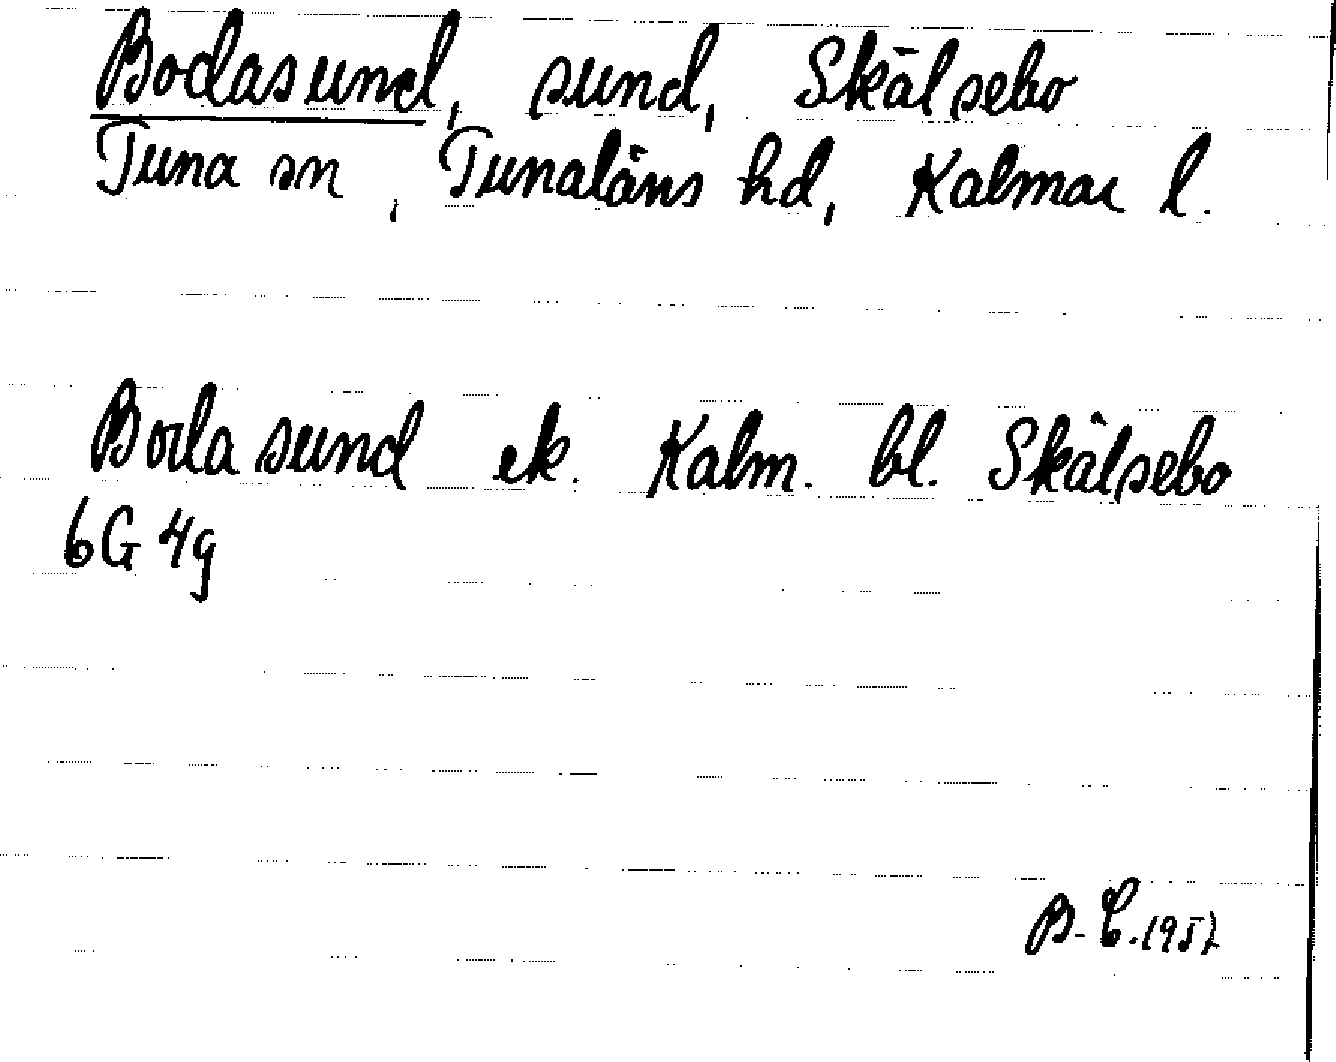 Bodasund, sund, Skälsebo
Tuna sn, Tunaläns hd, Kalmar l.
Bodasund ek. Kalm. bl. Skälsebo
6G 4g
B. C. 1952